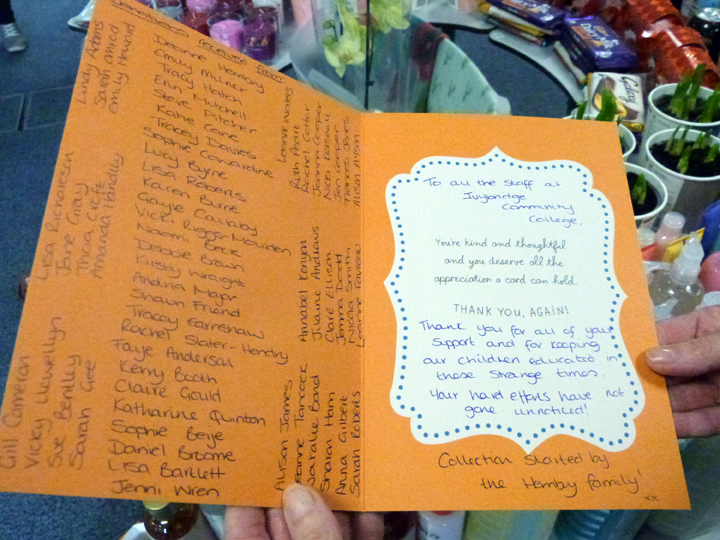 Donations received from:
Deanne Hemby
Emily Milner
Tracy Hatch
Erin Mitchell
Steve Pitcher
Katie Cane
Tracey Davies
Sophie Carwardine
Lucy Byrne
Lisa Roberts
Karen Burne
Gayle Callaby
Vicki Riggs-Maulden
Naomi Beck
Debbie Brown
Kirsty Wraight
Andria Major
Shaun Friend
Tracey Earnshaw
Rachel Slater-Hendry
Faye Anderson
Kerry Booth
Claire Gould
Katharine Quinton
Sophie Beije
Daniel Broome
Lisa Bartlett
Jenni Wren
Lindy Adams
Sarah
Emily
Lisa Richardson
Jane Gray
Thcia Crofte
Amanda Handley
Gill Cameron
Vicky Llewellyn
Sue Bentley
Sarah Gee
Leanne
Ruth
Rachel
Joanna Cooper
Nicki
Jan Cooper
Frances Jones
Alison
Annabel Kenyon
Julianne Andrews
Claire Ellison
Jemma
Nicola Smith
Leanne
Alyson James
Leanne Tancock
Natalie Bond
Sharon Ham
Anna Gilbert
Sarah Roberts
To all the staff at
Ivybridge
Community
College.
You're kind and thoughtful
and you deserve all the
appreciation a card can hold.
THANK YOU, AGAIN!
Thank you for all of your
support and for keeping
our children educated in
these strange times.
Your hard efforts have not
gone unnoticed!
Collection started by
the Hemby family!
xx
Galaxy